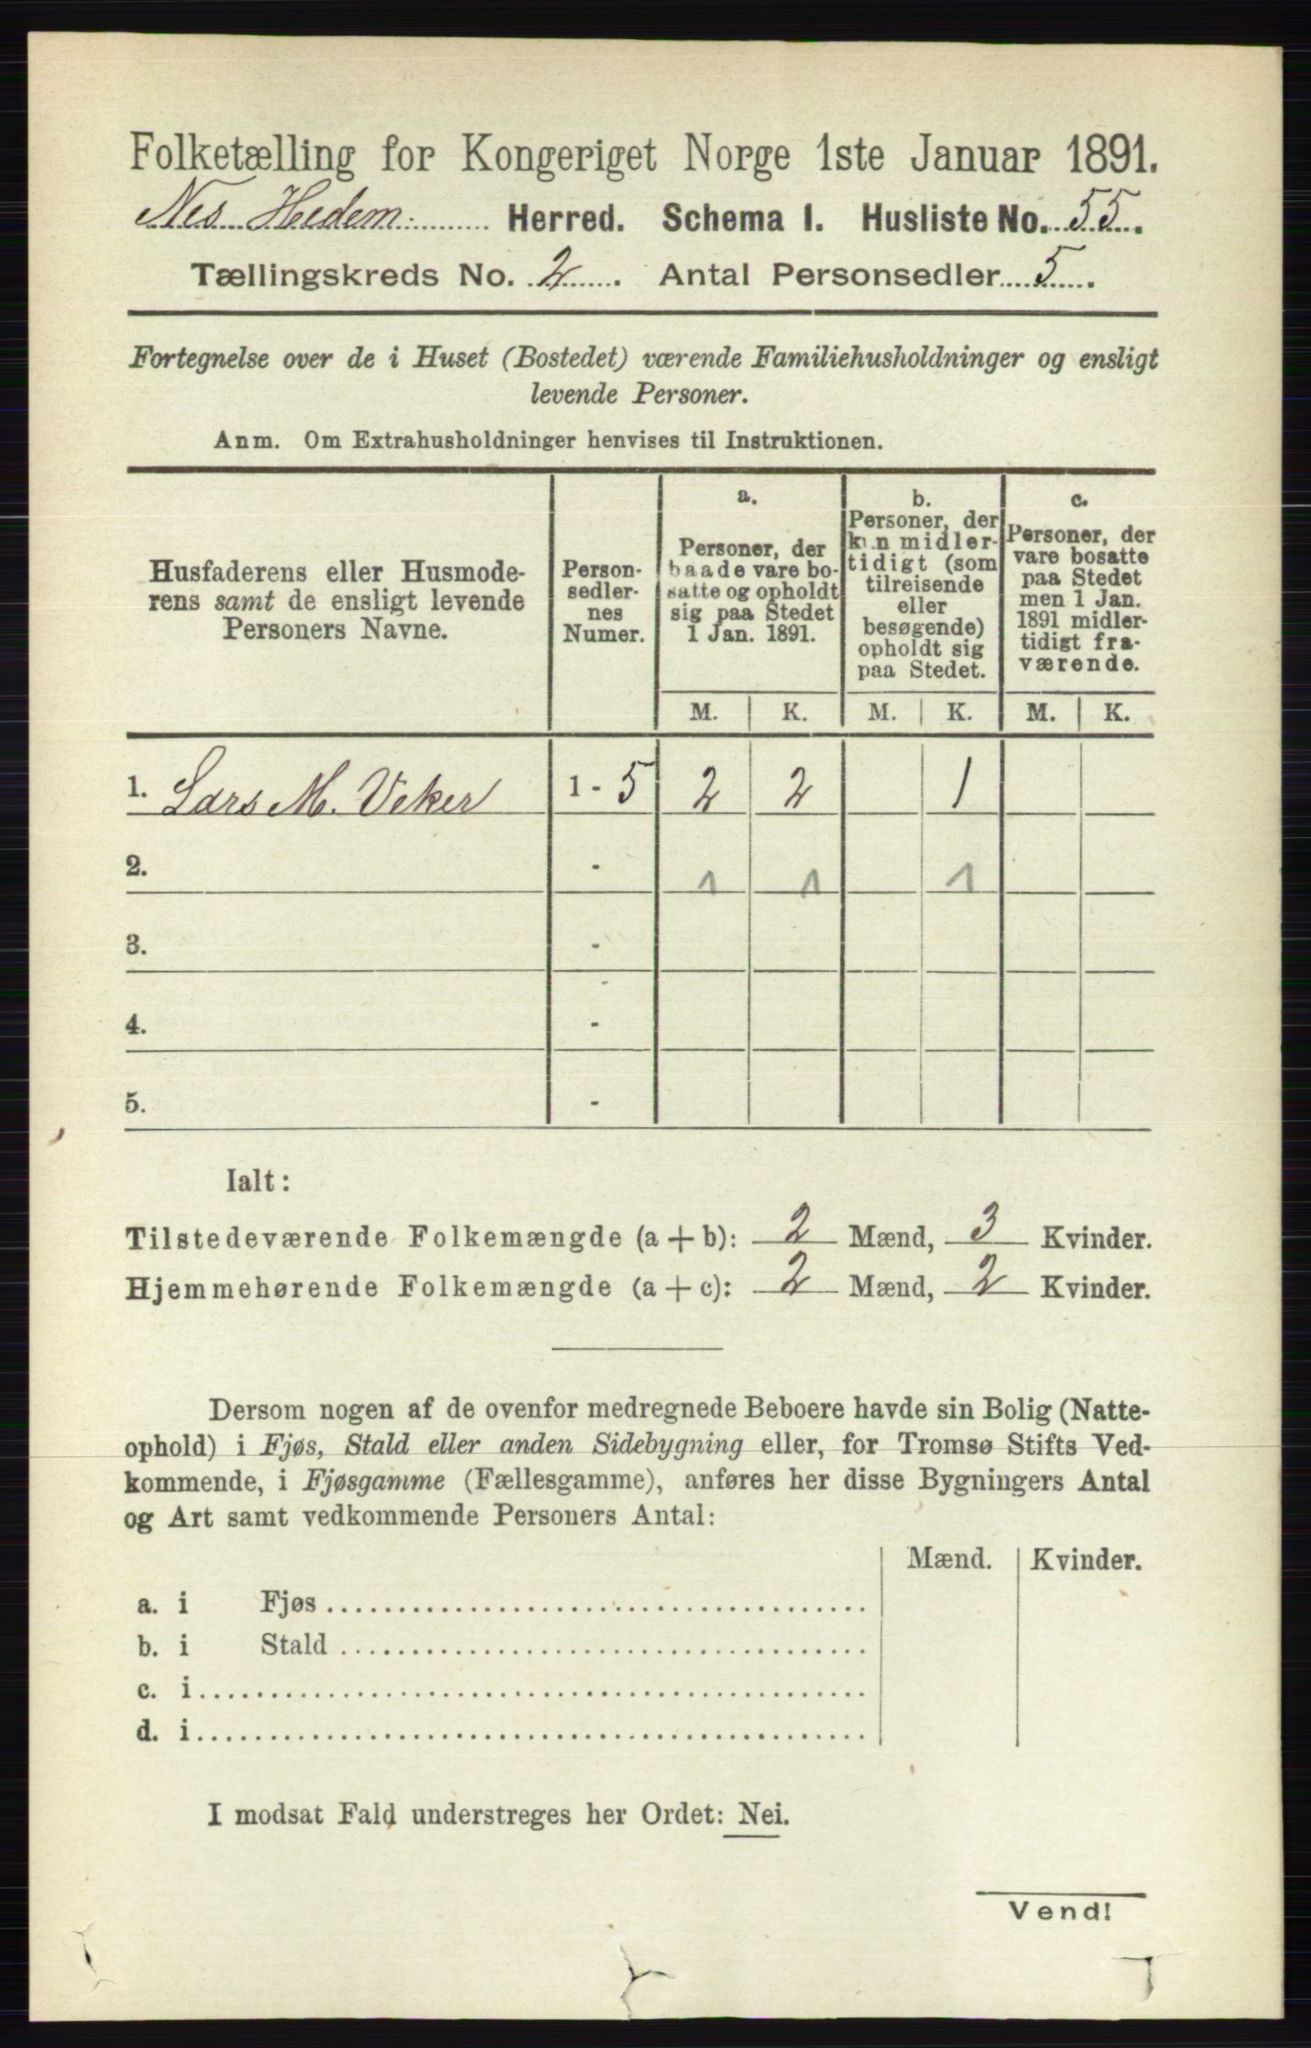 Folketælling for Kongeriget Norge 1ste Januar 1891.
Nes Hedem. Herred. Schema 1. Husliste No. 55.
Tællingskreds No. 2. Antal Personsedler 5.
Fortegnelse over de i Huset (Bostedet) værende Familiehusholdninger og ensligt
levende Personer.
Anm. Om Extrahusholdninger henvises til Instruktionen.
Husfaderens eller Husmode-
rens samt de ensligt levende
Personers Navne.
Person-
sedler-
nes
Numer.
a.
Personer, der
baade vare bo-
satte og opholdt
sig paa Stedet
1 Jan. 1891.
b.
Personer, der
kun midler-
tidigt (som
tilreisende
eller
besøgende)
opholdt sig
paa Stedet.
c.
Personer, der
vare bosatte
paa Stedet
men 1 Jan.
1891 midler-
tidigt fra-
værende.
M. K. M. K. M. K.
1. Lars M. Veker 1 - 5 2 2 1
2. - 1 1 1
3. -
4. -
5. -
Ialt:
Tilstedeværende Folkemængde (a + b): 2 Mænd, 3 Kvinder.
Hjemmehørende Folkemængde (a + c): 2 Mænd, 2 Kvinder.
Dersom nogen af de ovenfor medregnede Beboere havde sin Bolig (Natte-
ophold) i Fjøs, Stald eller anden Sidebygning eller, for Tromsø Stifts Ved-
kommende, i Fjøsgamme (Fællesgamme), anføres her disse Bygningers Antal
og Art samt vedkommende Personers Antal:
Mænd. Kvinder.
a. i Fjøs
b. i Stald
c. i
d. i
I modsat Fald understreges her Ordet: Nei.
Vend!